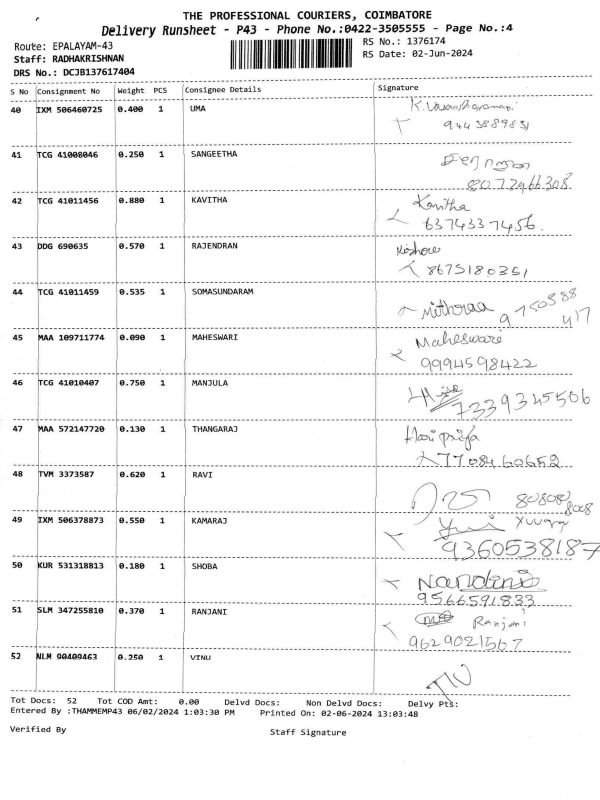 THE PROFESSIONAL COURIERS, COIMBATORE
Delivery Runsheet - P43 - Phone No.:0422-3505555 - Page No.:4
Route: EPALAYAM-43
RS No.: 1376174
Staff: RADHAKRISHNAN
RS Date: 02-Jun-2024
DRS No.: DCJB137617404
S No Consignment No Weight PCS Consignee Details Signature
40 IXM 506460725 0.400 1 UMA
9443889831
41 TCG 41008046 0.250 1 SANGEETHA
8072966308
42 TCG 41011456 0.880 1 KAVITHA Kavitha
6374337456.
43 DDG 690635 0.570 1 RAJENDRAN Kishore
8675180351
44 TCG 41011459 0.535 1 SOMASUNDARAM
Mithraa 9750588
417
45 MAA 109711774 0.090 1 MAHESWARI Maheswari
9994598422
46 TCG 41010407 0.750 1 MANJULA
7339345506
47 MAA 572147720 0.130 1 THANGARAJ Haripriya
7708460652
48 TVM 3373587 0.620 1 RAVI
808080
8008
49 IXM 506378873 0.550 1 KAMARAJ
9360538187
50 KUR 531318813 0.180 1 SHOBA
Nandini
9566591833
51 SLM 347255810 0.370 1 RANJANI Ranjani
9629021567
52 NLM 90409463 0.250 1 VINU
Tot Docs: 52 Tot COD Amt: 0.00 Delvd Docs: Non Delvd Docs: Delvy Pts:
Entered By :THAMMEMP43 06/02/2024 1:03:30 PM Printed On: 02-06-2024 13:03:48
Verified By Staff Signature